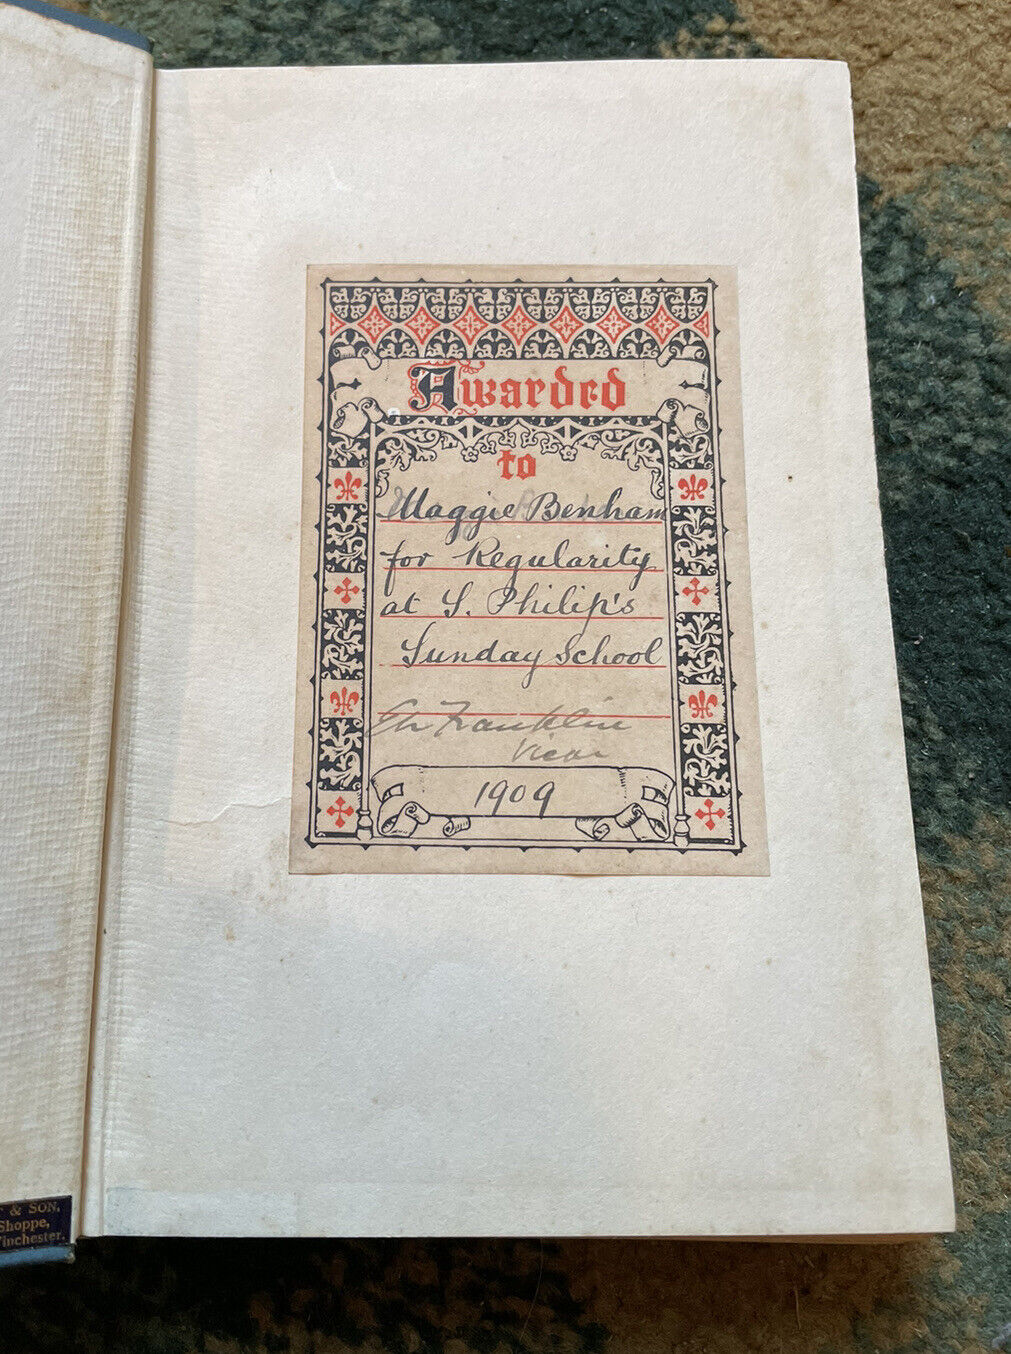 Awarded
to
Maggie Benham
for Regularity
at S. Philip's
Sunday School
Franklin
Vicar
1909
& SON,
Shoppe,
inchester.